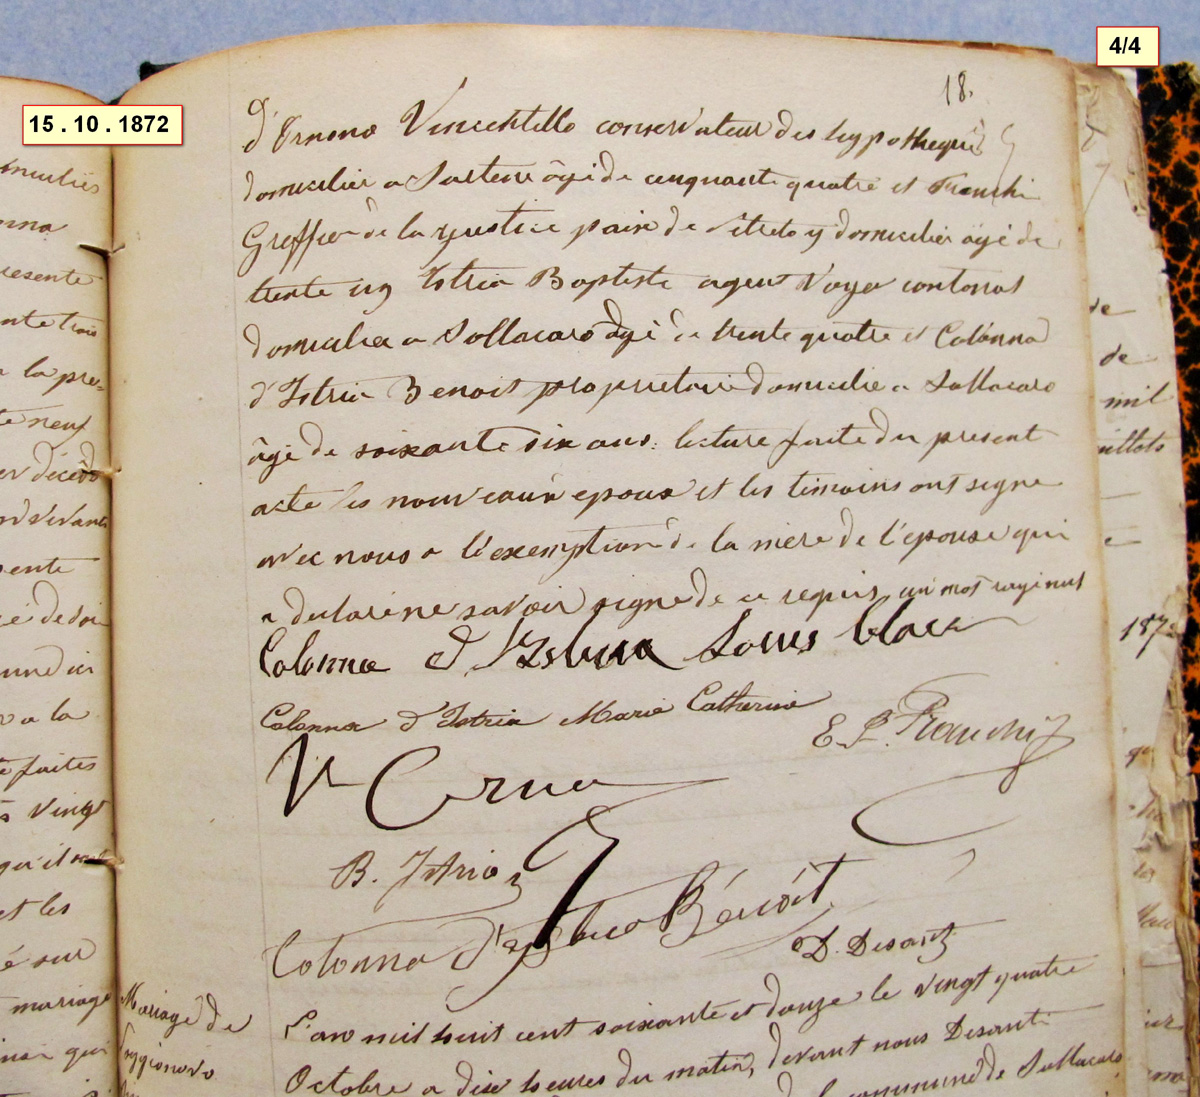 15 . 10 . 1872
4/4
18.
d'Ornano Vincentello conservateur des hypothèques
domicilier a Sartene âgé de cinquante quatre et Franchi
Greffier de la justice paix de Petreto y domicilier âgé de
trente un Istria Baptiste agent Voyer cantonal
domicilier a Sollacaro âgé de trente quatre et Colonna
d'Istria Benoit proprietaire domicilie a Sollacaro
âgé de soixante six ans. lecture faite du present
acte les nouveaux epoux et les temoins ont signe
avec nous a l'exemption de la mère de l'epouse qui
a declaré ne savoir signe de ce requis, un mot rayé nul
Colonna d'Istria Louis
Colonna d'Istria Marie Catherine
E. P. Franchi
V
B. Istria
Colonna d'Istria Bénoit
D. Desanti
Mariage de
Poggionovo
L'an mil huit cent soixante et douze le vingt quatre
Octobre a dix heures du matin, devant nous Desanti
commune de Sollacaro
nna
esente
a la pre=
te neuf
sente
r a la
te faites
Vingt
et les
é sur
mariage
de
de
mil
187